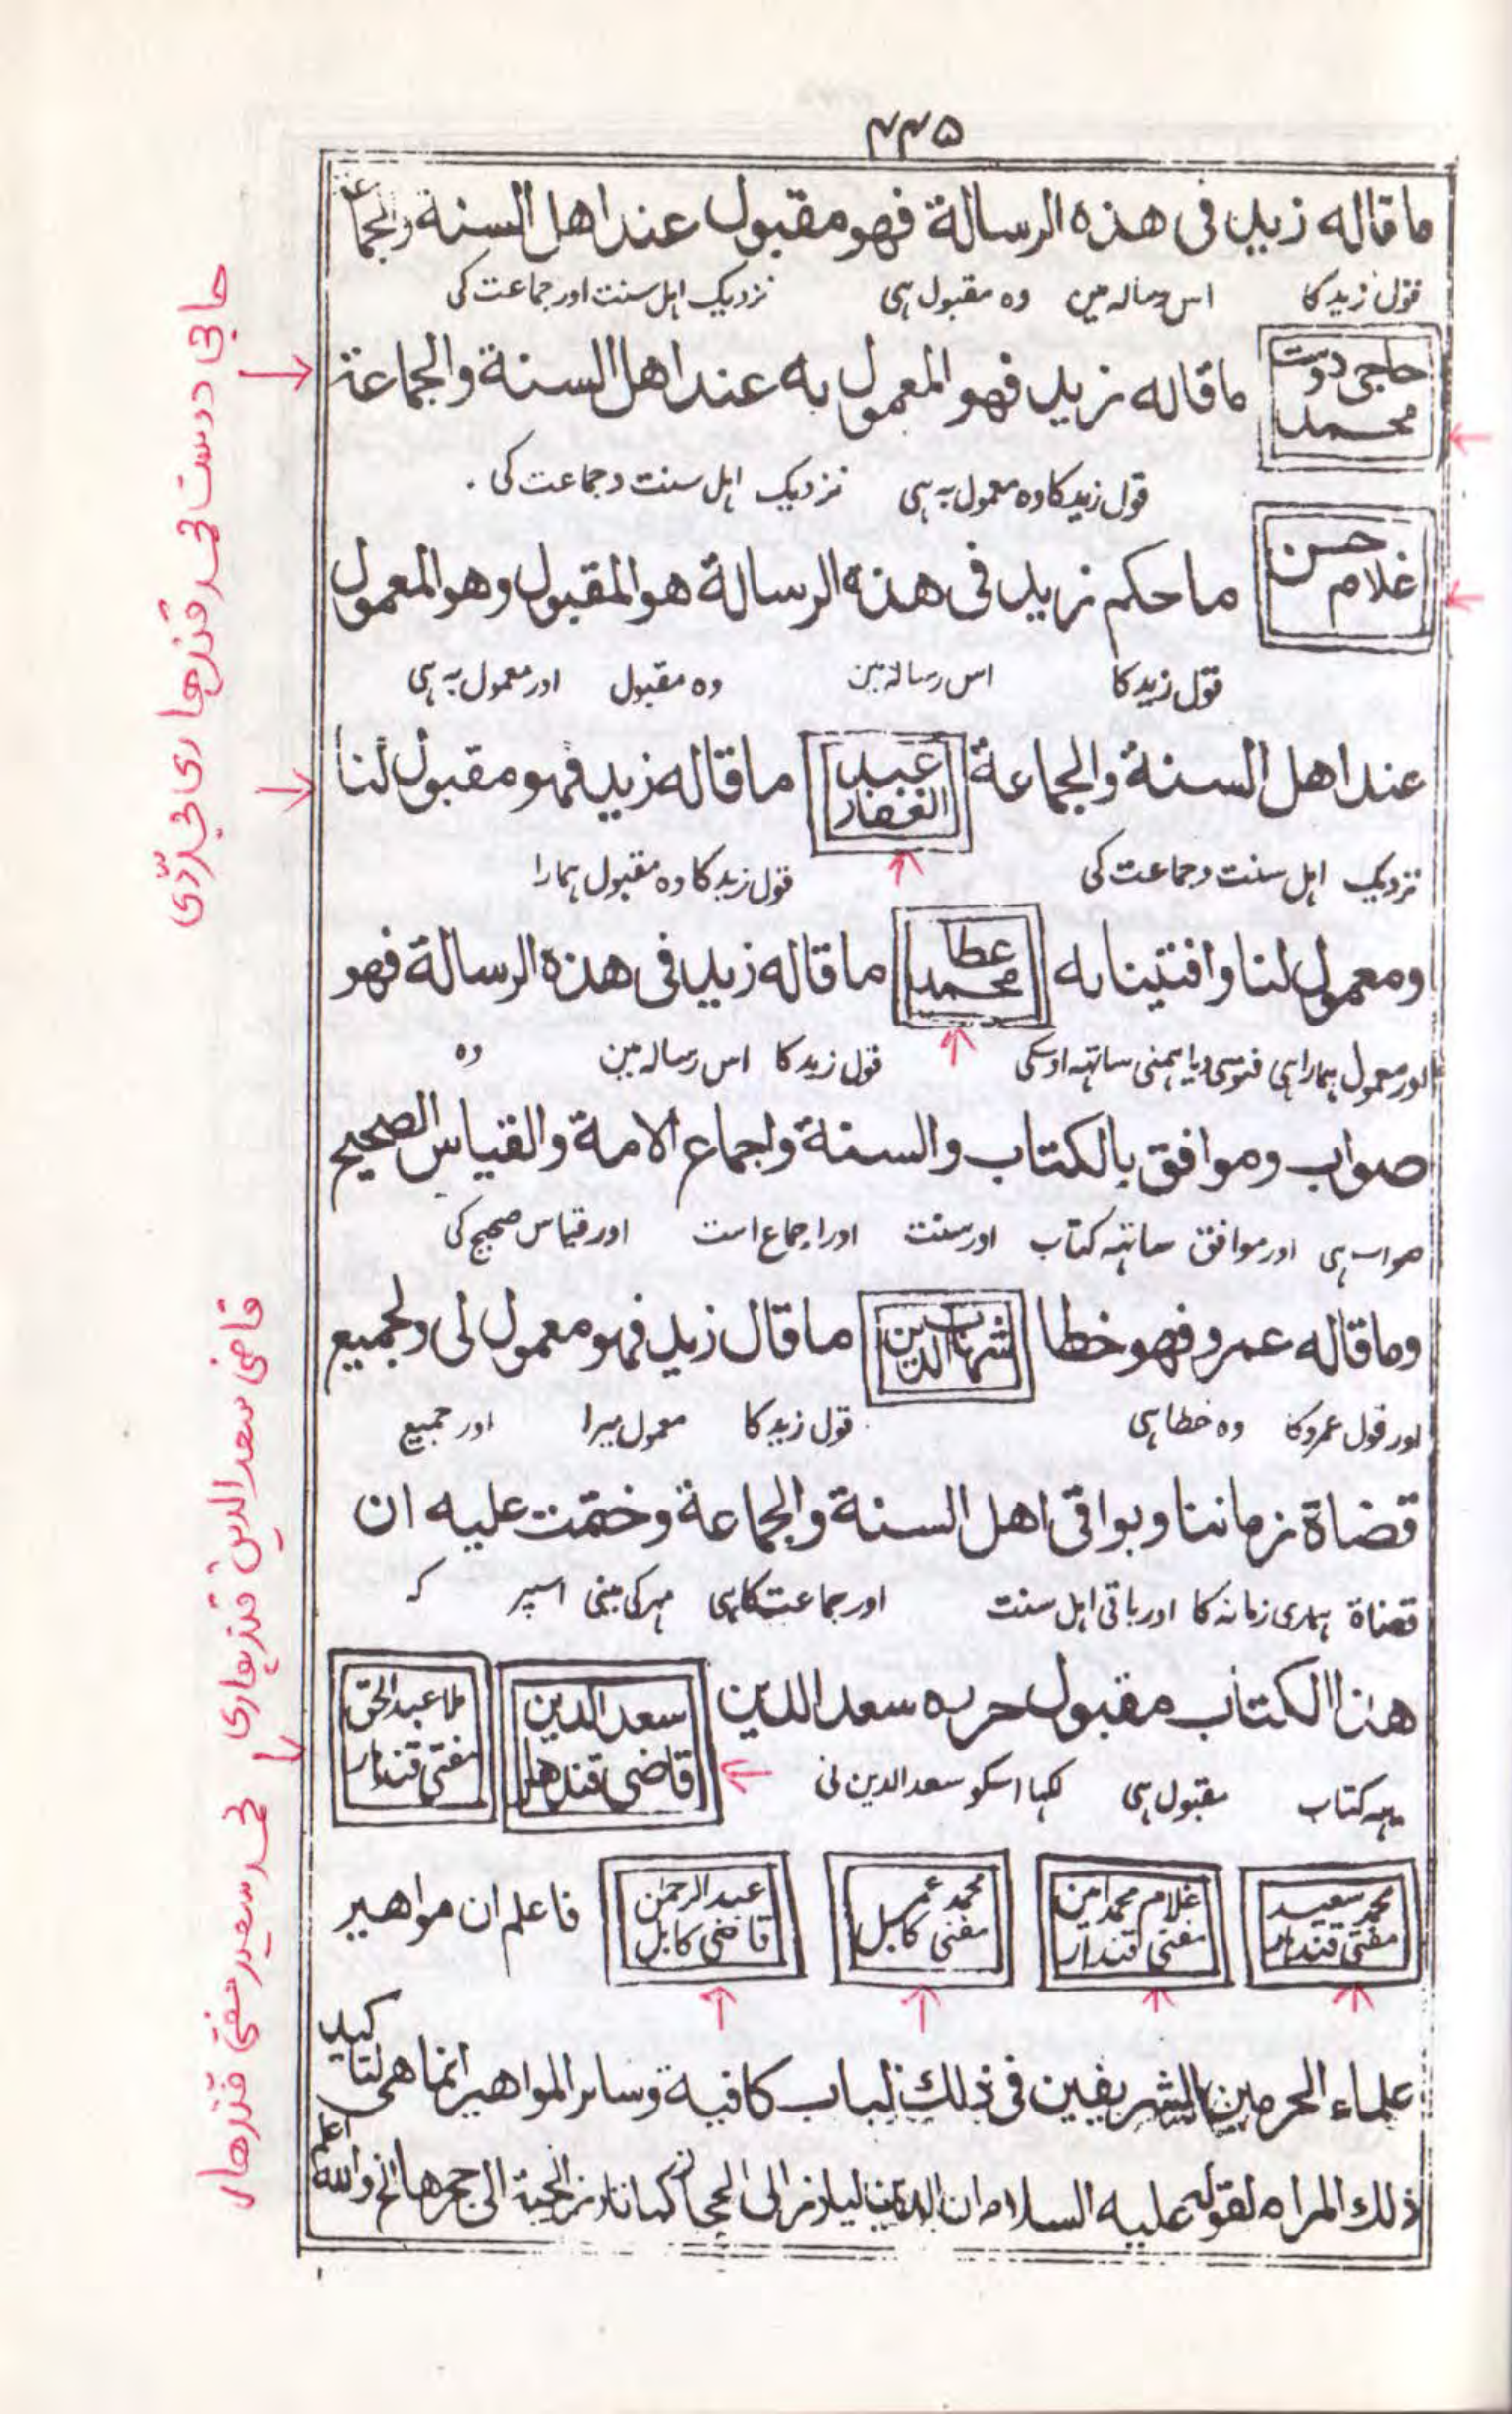 ۴۴۵
ما قاله زيد فى هذه الرسالة فهو مقبول عند اهل السنة والجماعة
قول زید کا اس رسالہ مین وہ مقبول ہی نزدیک اہل سنت اور جماعت کی
حاجی دوست محمد
ما قاله زيد فهو المعمول به عند اهل السنة والجماعة
قول زید کا وہ معمول بہ ہی نزدیک اہل سنت و جماعت کی
غلام حسن
ما حكم زيد فى هذه الرسالة هو المقبول وهو المعمول
قول زید کا اس رسالہ مین وہ مقبول اور معمول بہ ہی
عند اهل السنة والجماعة عبد الغفار ما قاله زيد فهو مقبول لنا
نزدیک اہل سنت و جماعت کی قول زید کا وہ مقبول ہمارا
ومعمول لنا وافتينا به عطا محمد ما قاله زيد فى هذه الرسالة فهو
اور معمول ہمارا ہی فتوی دیا ہمنی ساتہہ اوسکی قول زید کا اس رسالہ مین وہ
صواب وموافق بالكتاب والسنة واجماع الامة والقياس الصحيح
صواب ہی اور موافق ساتہہ کتاب اور سنت اور اجماع امت اور قیاس صحیح کی
وما قاله عمرو فهو خطا شهاب الدين ما قال زيد فهو معمول لى ولجميع
اور قول عمرو کا وہ خطا ہی قول زید کا معمول میرا اور جمیع
قضاة زماننا وبواقى اهل السنة والجماعة وختمت عليه ان
قضاة ہماری زمانہ کا اور باقی اہل سنت اور جماعت کا ہی مہر کی مینی اسپر کہ
هذا الكتاب مقبول حرره سعد الدين سعد الدين قاضی قندهار ملا عبد الحق مفتی قندہار
یہہ کتاب مقبول ہی لکہا اسکو سعد الدین نی
محمد سعید مفتی قندہار غلام محمد امین مفتی قندہار محمد عمر مفتی کابل عبد الرحمن قاضی کابل فاعلم ان مواهير
علماء الحرمين الشريفين فى ذلك لباب كافية وسائر المواهير انما هى لتاكيد
ذلك المرام لقوله عليه السلام ان الدين ليارز الى الحجاز كما تارز الحية الى جحرها الخ والله اعلم
حاجی دوست محمد قندهاری مجددی
قاضی سعد الدین قندہاری
محمد سعید مفتی قندهار